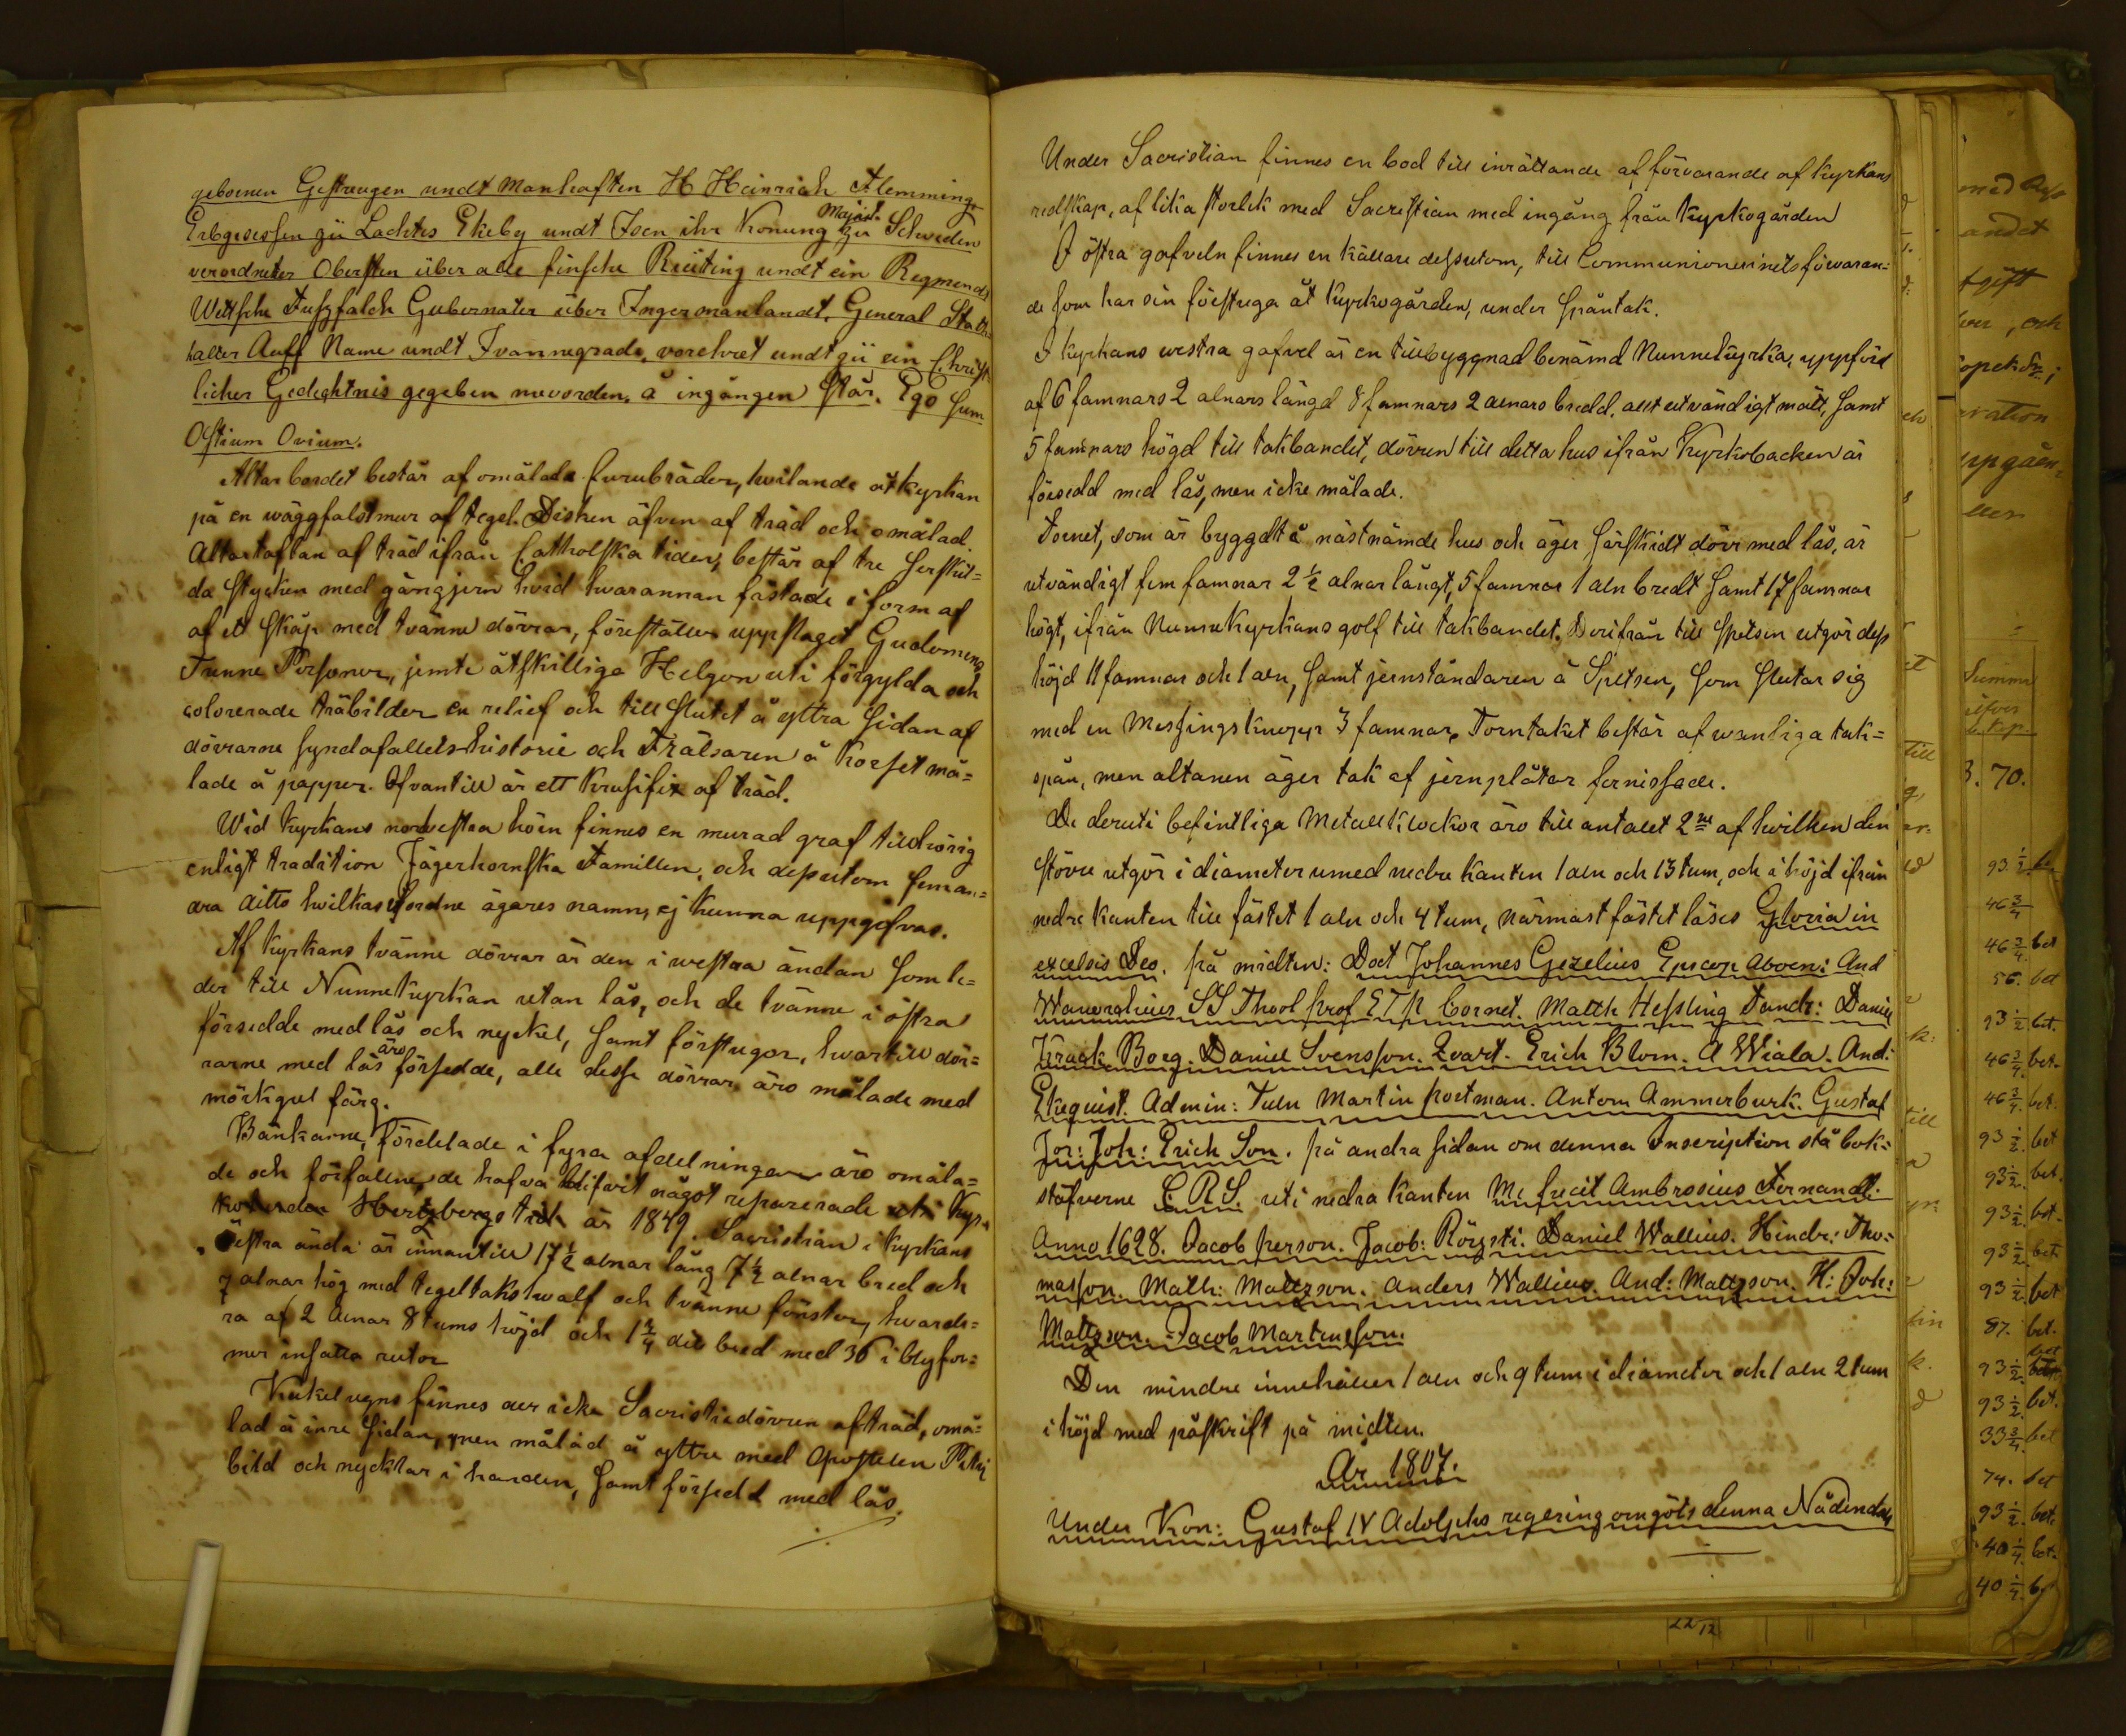 geboernen Gestreugen undt Manhaften H Heinrich Flemming
Erbgesessen zü Lachtis Ekeby undt Isen ihr Konung Majöst. zu Schweden
verordneter Obersten über alle finsche Reuting undt ein Regmends
Wettsche Fuszfalck Gubernater über Ingermanlandt, General Stadt
halter Auff Name undt Ivannegrade, vorehret undt zü ein Christ
licher Gedechtnis gegeben neworden. å ingången står, Ego sum
Ostium Ovium.
Altarbordet består af omålade furubräder, hvilande åt kyrkan
på en wäggfalstmur af tegel. Disken äfven af träd och omålad.
Altartaflan af träd ifrån Catholska tiden, består af tre serskil=
da stycken med gångjern hvid hwarannan fästade i form af
af ett skåp med tvänne dörrar, föreställer uppslaget Gudomens
Trenne Personer, jemte åtskilliga Helgon uti förgylda och
colorerade träbilder en relief och till slutet å yttra sidan af
dörrarne syndafallets historie och Frälsaren å Korset må=
lade å papper. Ofvantill är ett Krusifix af träd.
Wid kyrkans nordvestra hörn finnes en murad graf tillhörig
enligt tradition Jägerhornska Famillen, och dessutom fem an=
dra ditto hvilkas fordne ägares namn, ej kunna uppgifvas.
Af kyrkans tvänne dörrar är den i westra ändan som le=
der till Nunnekyrkan utan lås, och de tvänne i östra
försedde med lås och nyckel, samt förstugor, hwartill dör=
rarne med lås äro försedde, alle desse dörrar äro målade med
mörkgul färg.
Bänkarne, fördelade i fyra afdelningar äro omåla=
de och förfallne, de hafva blifvit något reparerade uti Kyr
koherden Hertzbergs tid år 1849. Sacristian i kyrkans
Östra ända är innantill 17 ½ alnar lång 7 ½ alnar bred och
7 alnar hög med tegeltakshwalf och tvänne fönster, hvarde=
ra af 2 alnar 8 tums höjd och 1 ¾ dito bred med 36 i blyfor=
mer insatta rutor
Kakelugns finnes der icke Sacristiedörren af träd, omå=
lad å inre sidan, men målad å yttre med Apostelen Petri
bild och nycklar i handen, samt försedd med lås.
Under Sacristian finnes en bod till inrättande af förvarande af Kyrkans
redskap, af lika storlek med Sacristian med ingång från Kyrkogården
I östra gafveln finnes en källare dessutom, till Communionvinets förvaran=
de som har sin förstuga åt Kyrkogården, under spåntak.
I kyrkans westra gafvel är en tillbyggnad benämd Nunnekyrka, uppförd
af 6 famnars 2 alnars längd 8 famnars 2 alnars bredd, allt utvändigt mätt, samt
5 famnars högd till takbandet, dörren till detta hus ifrån Kyrkobacken är
försedd med lås, men icke målade.
Tornet, som är byggdt å nästnämde hus och äger särskildt dörr med lås, är
utvändigt fem famnar 2 ½ alnar långt, 5 famnar 1 aln bredt samt 17 famnar
högt, ifrån Nunnekyrkans golf till takbandet. Derifrån till spetsen utgör dess
höjd 11 famnar och 1 aln, samt jernständaren å Spetsen, som slutar sig
med en Messingsknopp 3 famnar. Torntaket består af wanliga tak=
spån, men altanen äger tak af jernplåtar fernissade.
De deruti befintliga Metallklockor äro till antalet 2ne af hvilken den
större utgör i diameter vmed nedre kanten 1 aln och 13 tum, och i höjd ifrån
nedre kanten till fästet 1 aln och 4 tum, närmast fästet läses Gloria in
excelsis Deo. på midten: Doct Johannes Gezelius Episcop Aboen: And
Wanoralius SS Theol prof ETP Cornet. Matth Hessling Tandr: Daniel
Krack Borg. Daniel Svensson. Qvart. Erich Blom. A Wiala. And:
Ekequist. Admin: Tuln Martin portman. Antom Ammerburk. Gustaf
Jor: Joh: Erich Son. på andra sidan om denna Inscription stå bok=
stäfverne C.R.S. uti nedra kanten Me fecit Ambrosius Fernandt.
Anno 1628. Jacob person. Jacob: Röysti. Daniel Wallius. Hindr: Tho:
masson. Math: Mattzson. Anders Wallius. And: Mattzson. H: Joh:
Mattzson. Jacob Martensson.
Den mindre innehåller 1 aln och 9 tum i diameter och 1 aln 2 tum
i höjd med påskrift på midten.
År 1807.
Under Kon: Gustaf IV Adolphs regering omgöts denna Nådendals
andet
och
Summa
3. 70.
till
93 ½
46 ¾
46 ¾ bet
56. bet
93 ½ bet.
46 ¾ bet.
46 ¾ bet.
93 ½ bet
93 ½ bet.
93 ½ bet.
93 ½ bet
93 ½ bet
87. bet.
93 ½ bet
93 ½ bet.
33 ¾ bet
74. bet
93 ½ bet.
40 ¼ bet.
40 ¼